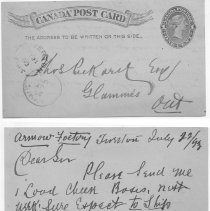 CANADA POST CARD
THE ADDRESS TO BE WRITTEN ON THIS SIDE
Thos Pickard Esq
Glammis
Ont
Armow Factory July 22/93
Dear Sir
Please Send me
1 Load Cheese Boxes next
week Sure Expect to Ship